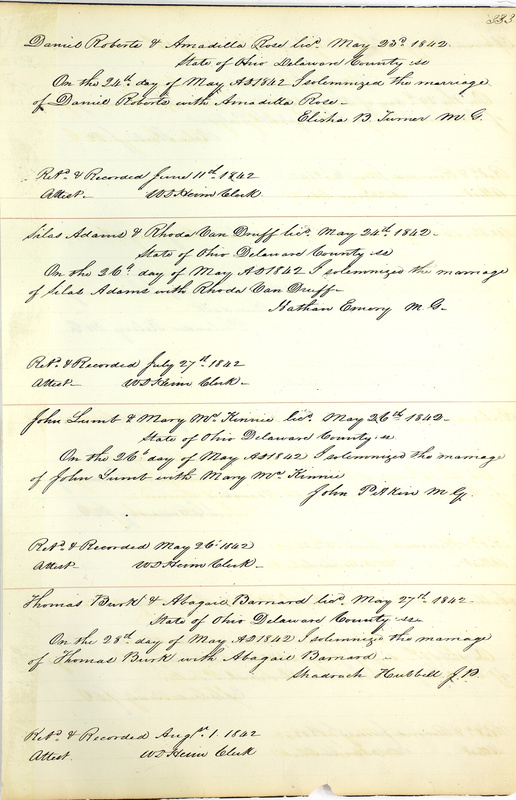 333
Daniel Roberts & Amadilla Rose licd. May 23d. 1842.
State of Ohio Delaware County ss
On the 24th. day of May AD 1842 I solemnized the marriage
of Daniel Roberts with Amadilla Rose -
Elisha B. Turner M. G.
Retd. & Recorded June 11th. 1842
Attest - W D Heim Clerk
Silas Adams & Rhoda Van Druff licd. May 24th. 1842 -
State of Ohio Delaware County ss
On the 26th. day of May AD 1842 I solemnized the marriage
of Silas Adams with Rhoda Van Druff -
Nathan Emery M. G -
Retd. & Recorded July 27th. 1842
Attest - W D Heim Clerk -
John & Mary Mc. Kinnie licd. May 26th. 1842 -
State of Ohio Delaware County ss
On the 26th day of May AD 1842 I solemnized the marriage
of John with Mary Mc. Kinnie
John Pitkin M. G.
Retd. & Recorded May 26th 1842
Attest - W D Heim Clerk -
Thomas Burk & Abagail Barnard licd. May 27th. 1842 -
State of Ohio Delaware County ss
On the 28th. day of May AD 1842 I solemnized the marriage
of Thomas Burk with Abagail Barnard -
Shadrach Hubbell J. P.
Retd. & Recorded Augst. 1. 1842
Attest. W D Heim Clerk